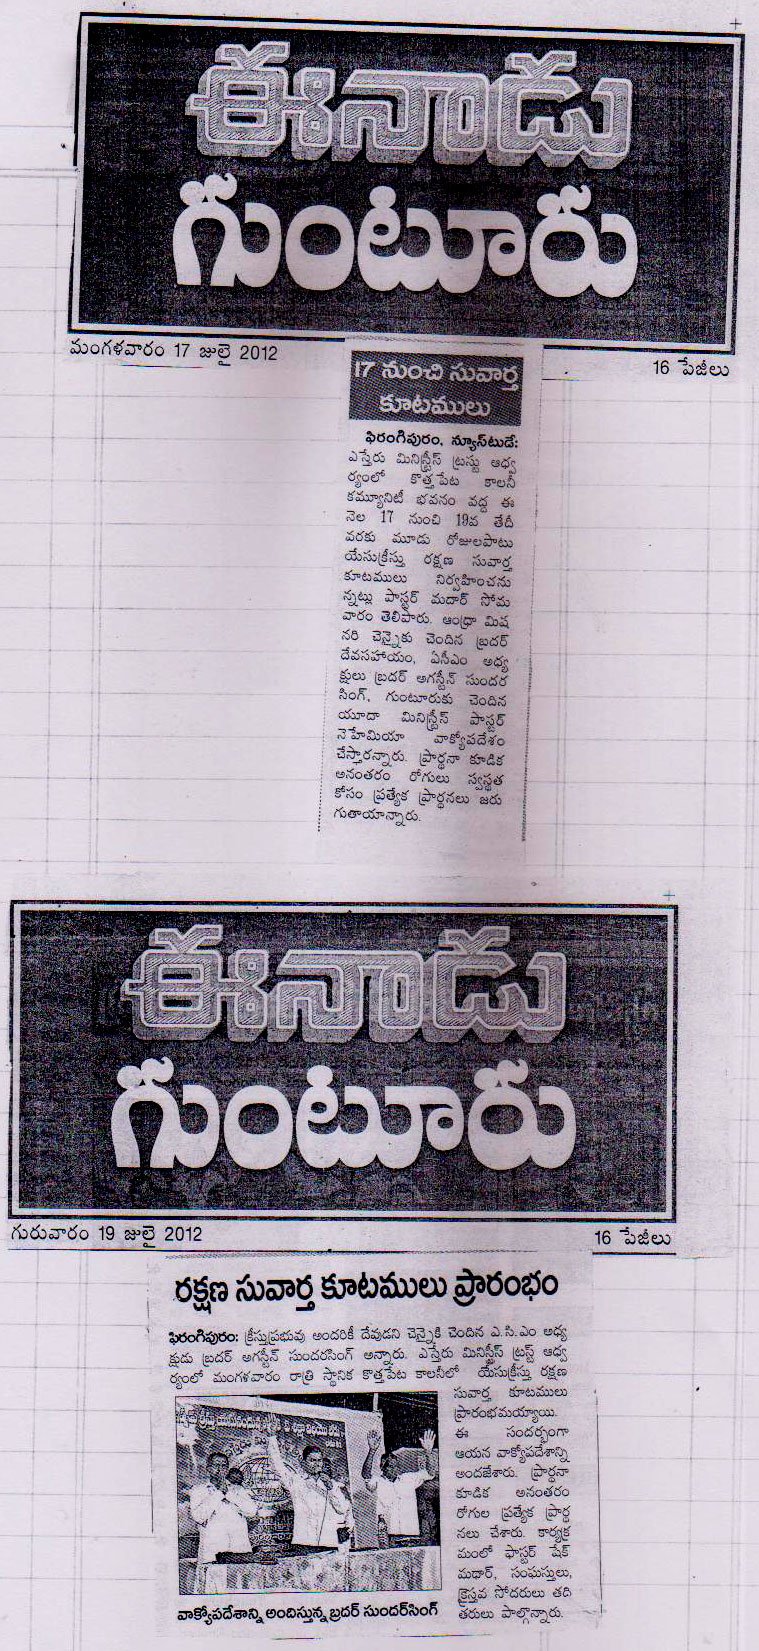 ఈనాడు
గుంటూరు
మంగళవారం 17 జులై 2012
16 పేజీలు
17 నుంచి సువార్త
కూటములు
ఫిరంగిపురం, న్యూస్‌టుడే:
ఎస్తేరు మినిస్ట్రీస్ ట్రస్టు ఆధ్వ
ర్యంలో కొత్తపేట కాలనీ
కమ్యూనిటీ భవనం వద్ద ఈ
నెల 17 నుంచి 19వ తేదీ
వరకు మూడు రోజులపాటు
యేసుక్రీస్తు రక్షణ సువార్త
కూటములు నిర్వహించను
న్నట్లు పాస్టర్ మదార్ సోమ
వారం తెలిపారు. ఆంధ్రా మిష
నరీ చెన్నైకు చెందిన బ్రదర్
దేవసహాయం, ఏసీఎం అధ్య
క్షులు బ్రదర్ అగస్టీన్ సుందర
సింగ్, గుంటూరుకు చెందిన
యూదా మినిస్ట్రీస్ పాస్టర్
నెహేమియా వాక్యోపదేశం
చేస్తారన్నారు. ప్రార్థనా కూడిక
అనంతరం రోగులు స్వస్థత
కోసం ప్రత్యేక ప్రార్థనలు జరు
గుతాయాన్నారు.
ఈనాడు
గుంటూరు
గురువారం 19 జులై 2012
16 పేజీలు
రక్షణ సువార్త కూటములు ప్రారంభం
ఫిరంగిపురం: క్రీస్తుప్రభువు అందరికీ దేవుడని చెన్నైకి చెందిన ఎ.సి.ఎం అధ్య
క్షుడు బ్రదర్ అగస్టీన్ సుందరసింగ్ అన్నారు. ఎస్తేరు మినిస్ట్రీస్ ట్రస్ట్ ఆధ్వ
ర్యంలో మంగళవారం రాత్రి స్థానిక కొత్తపేట కాలనీలో యేసుక్రీస్తు రక్షణ
సువార్త కూటములు
ప్రారంభమయ్యాయి.
ఈ సందర్భంగా
ఆయన వాక్యోపదేశాన్ని
అందజేశారు. ప్రార్థనా
కూడిక అనంతరం
రోగుల ప్రత్యేక ప్రార్థ
నలు చేశారు. కార్యక్ర
మంలో ఫాస్టర్ షేక్
మదార్, సంఘస్తులు,
క్రైస్తవ సోదరులు తది
తరులు పాల్గొన్నారు.
వాక్యోపదేశాన్ని అందిస్తున్న బ్రదర్ సుందర్‌సింగ్